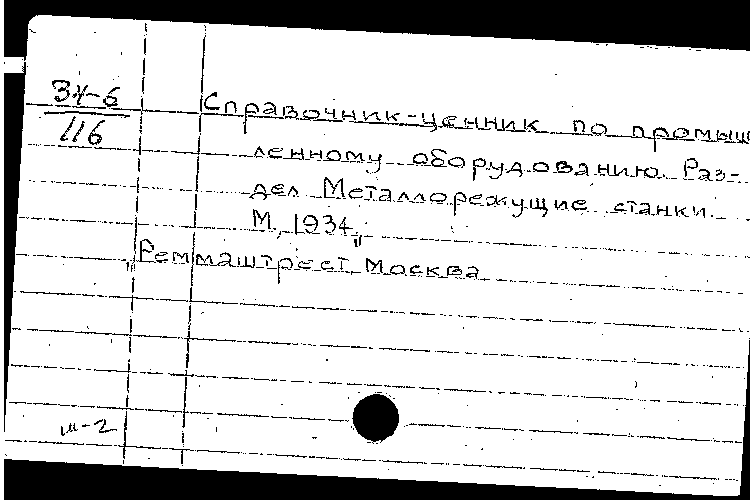 З4-6
116
Справочник-ценник по промыш
ленному оборудованию. Раз-
дел Металлорежущие станки.
М., 1934
"Реммаштрест" Москва
ш-2